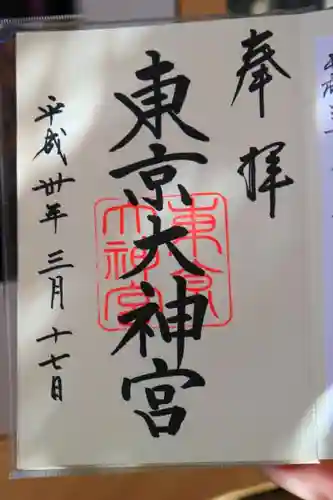 奉拝
東京大神宮
東京大神宮
平成卅年三月十七日